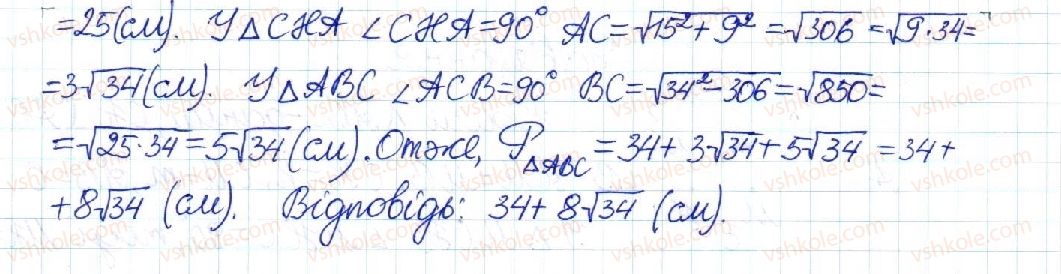 =25(см). У △CHA ∠CHA=90° AC=√15²+9² =√306 =√9·34=
=3√34(см). У △ABC ∠ACB=90° BC=√34²-306=√850=
=√25·34=5√34(см). Отже, P△ABC =34+ 3√34+5√34 =34+
+8√34 (см). Відповідь: 34+ 8√34 (см).